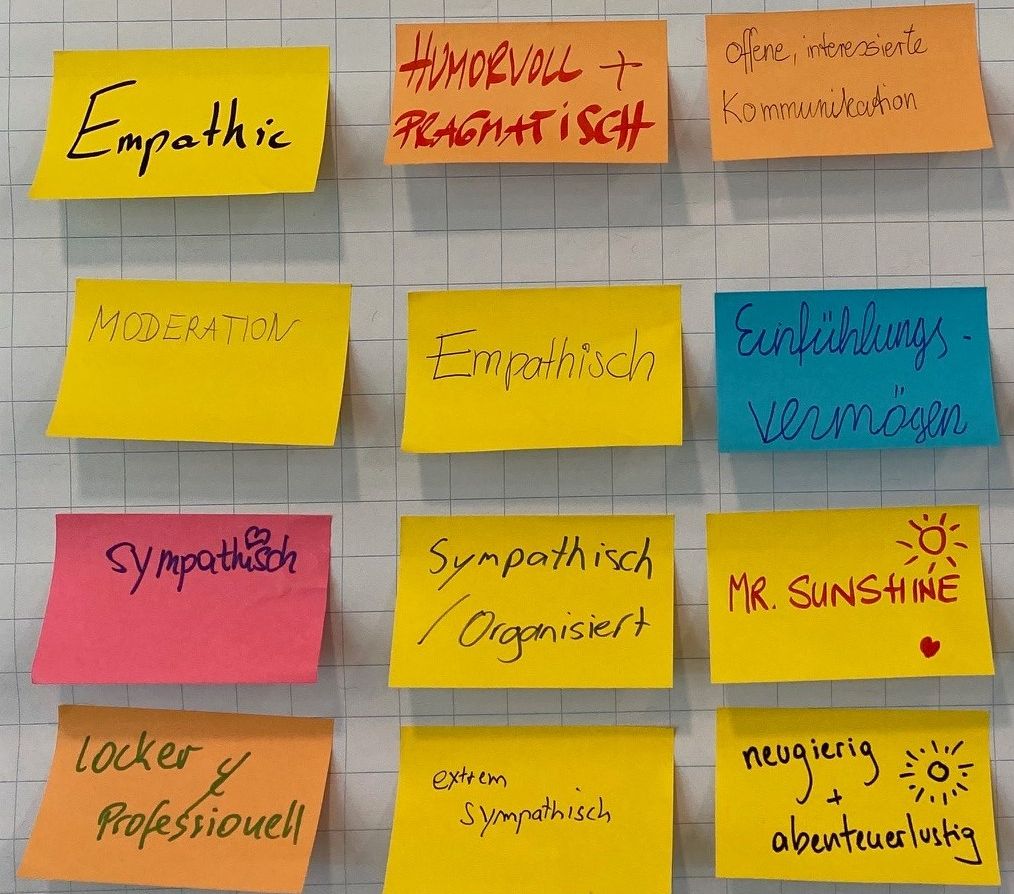 Empathic
HUMORVOLL +
PRAGMATISCH
offene, interessierte
Kommunikation
MODERATION
Empathisch
Einfühlungs-
vermögen
Sympathisch
Sympathisch
/Organisiert
MR. SUNSHINE
locker y
Professionell
extrem
sympathisch
neugierig
+
abenteuerlustig